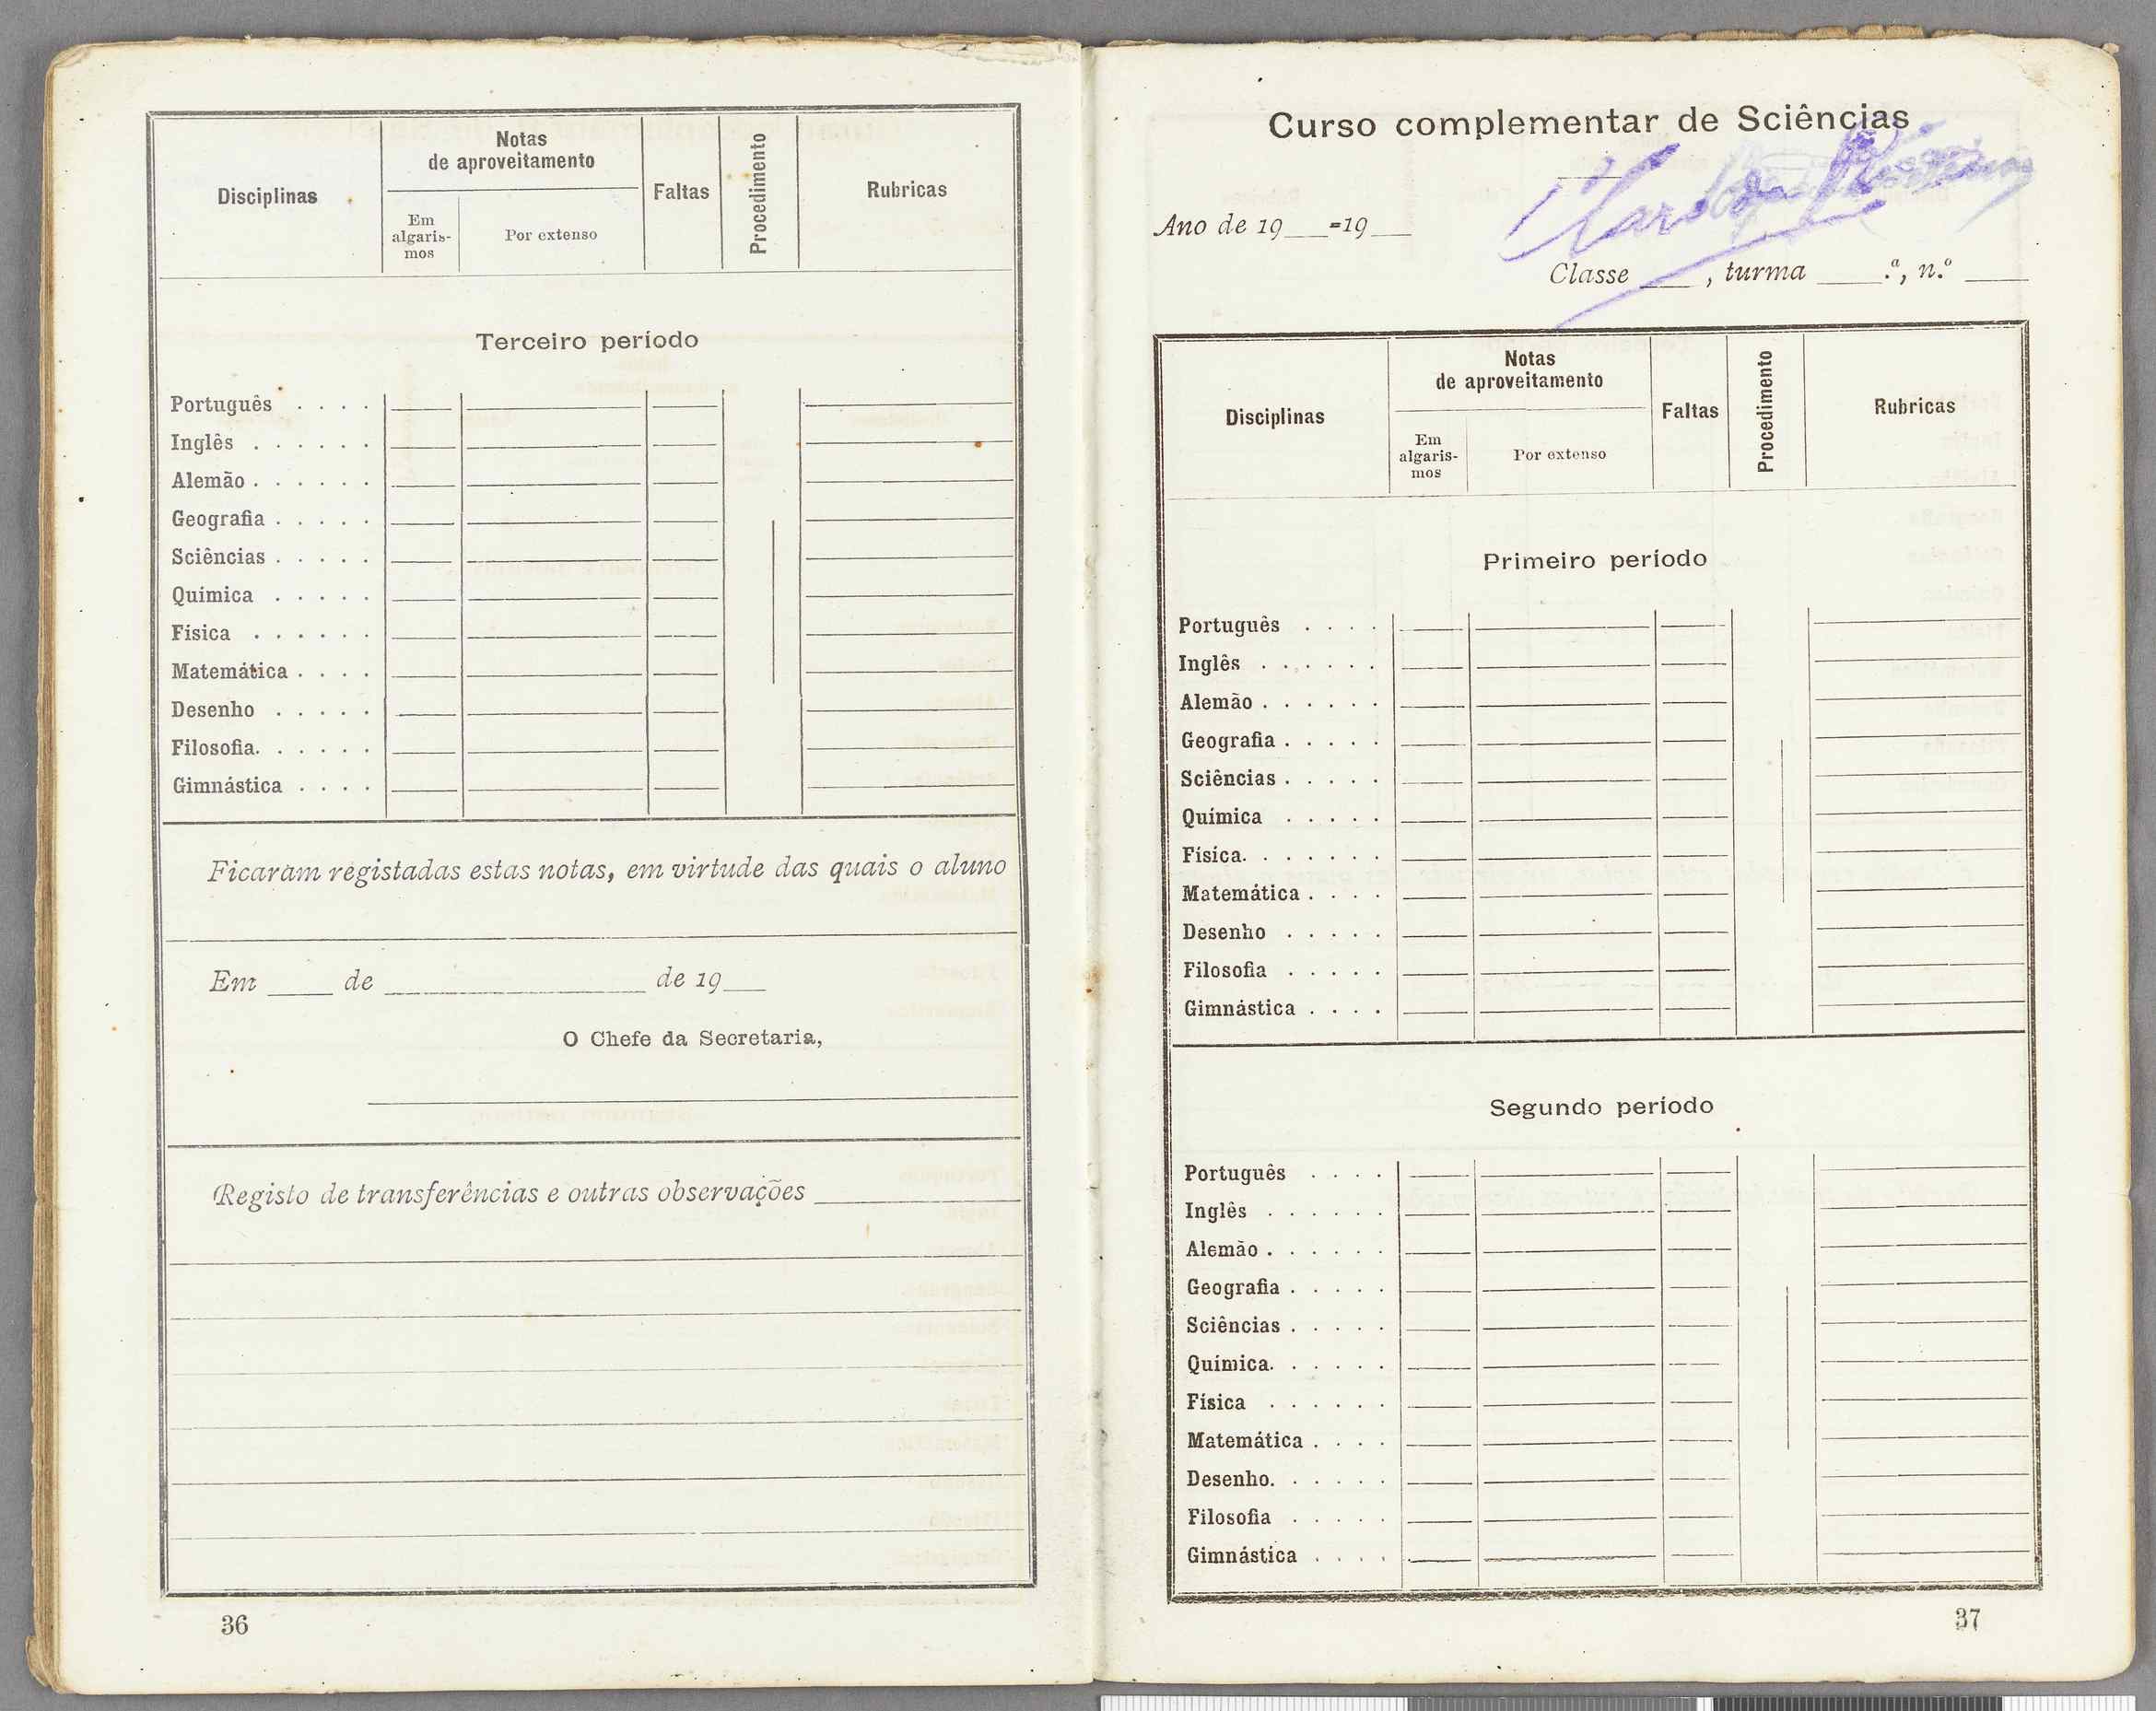 Disciplinas
Notas
de aproveitamento
Em
algaris-
mos
Por extenso
Faltas
Procedimento
Rubricas
Terceiro período
Português . . . .
Inglês . . . . . .
Alemão . . . . . .
Geografia . . . . .
Sciências . . . . .
Química . . . . .
Física . . . . . .
Matemática . . . .
Desenho . . . . .
Filosofia. . . . . .
Gimnástica . . . .
Ficaram registadas estas notas, em virtude das quais o aluno
Em ____ de ____ de 19__
O Chefe da Secretaria,
Registo de transferências e outras observações
36
Curso complementar de Sciências
Ano de 19__=19__
Classe ___, turma ____.ª, n.º ____
Disciplinas
Notas
de aproveitamento
Em
algaris-
mos
Por extenso
Faltas
Procedimento
Rubricas
Primeiro período
Português . . . .
Inglês . . . . . .
Alemão . . . . . .
Geografia . . . . .
Sciências . . . . .
Química . . . . .
Física. . . . . . .
Matemática . . . .
Desenho . . . . .
Filosofia . . . . .
Gimnástica . . . .
Segundo período
Português . . . .
Inglês . . . . . .
Alemão . . . . . .
Geografia . . . . .
Sciências . . . . .
Química. . . . . .
Física . . . . . .
Matemática . . . .
Desenho. . . . . .
Filosofia . . . . .
Gimnástica . . . .
37